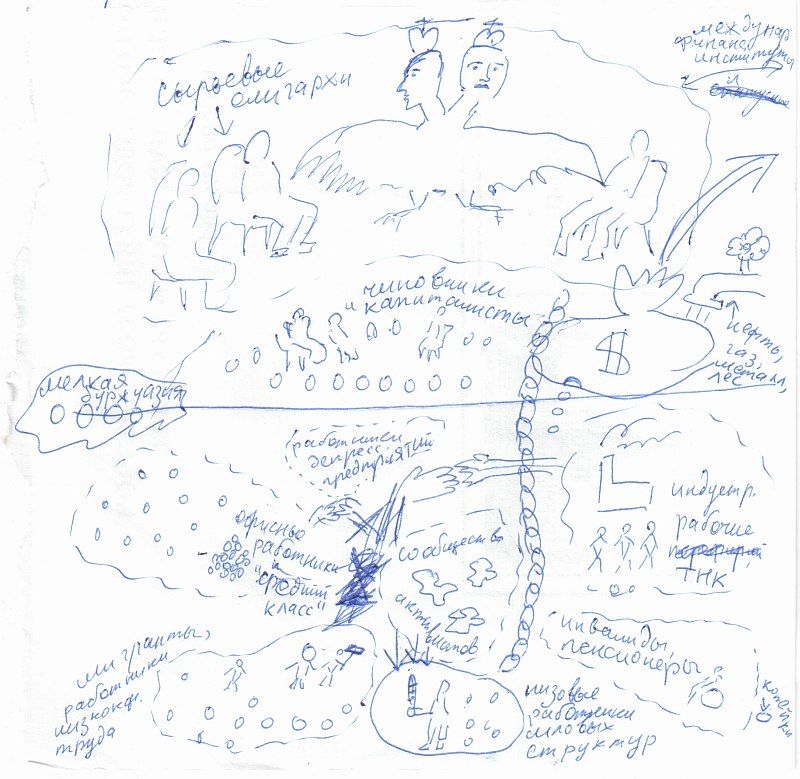 сырьевые
олигархи
междунар
финанс
институты
и
чиновники
и капиталисты
$
нефть,
газ,
металл,
лес
мелкая
буржуазия
работники
депресс.
предприятий
офисные
работники
и
"средний
класс"
сообщество
активистов
индустр.
рабочие
ТНК
инвалиды,
пенсионеры
копейки
мигранты,
работники
низкокв.
труда
низовые
работники
силовых
структур